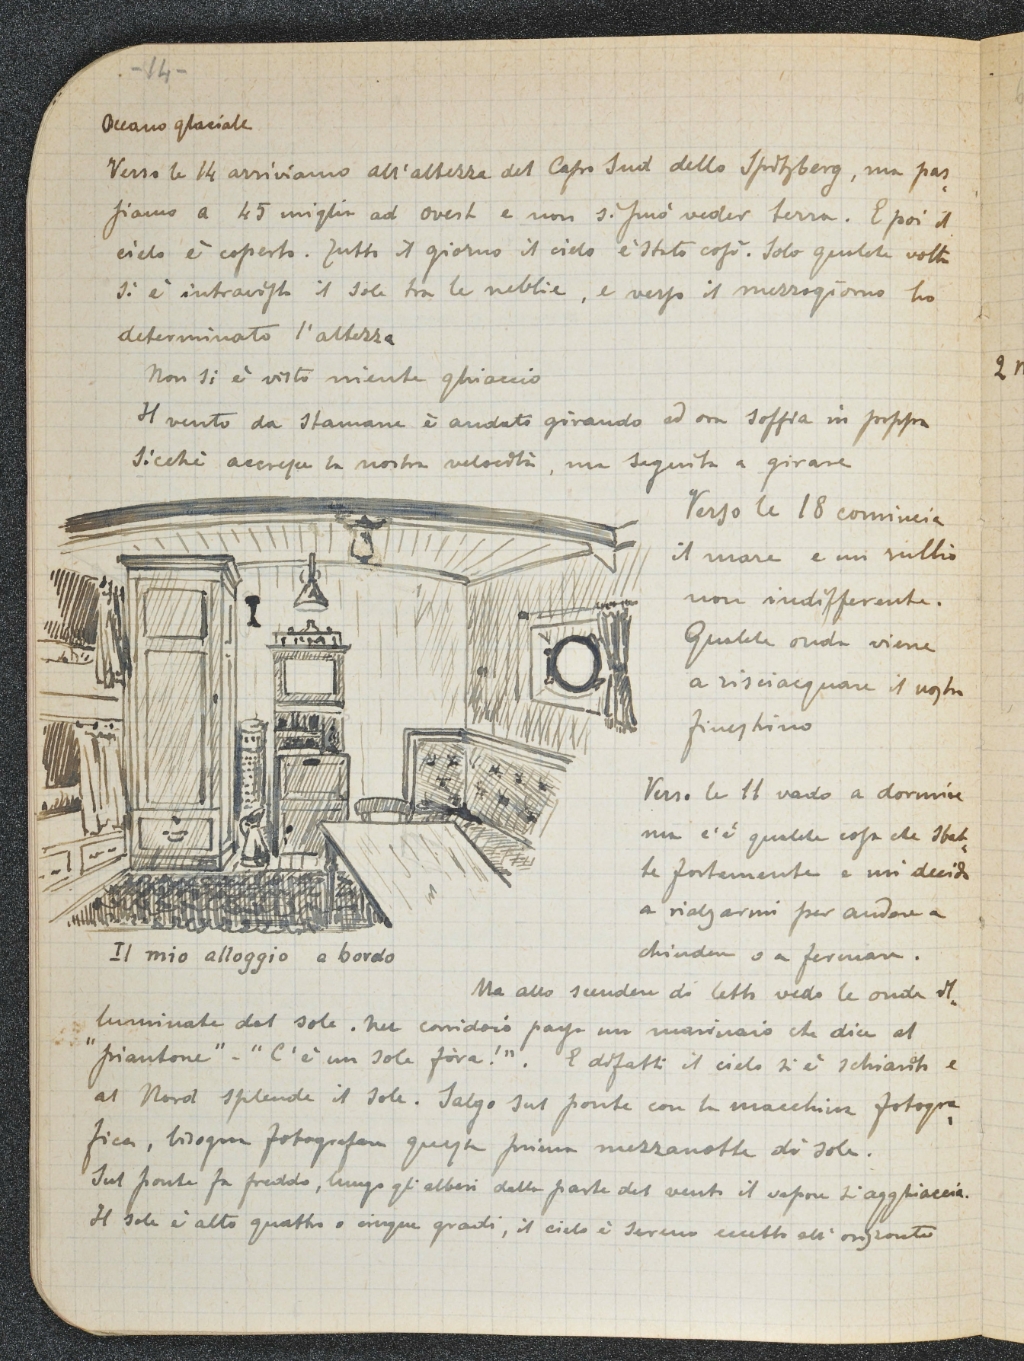 -14-
Oceano glaciale
Verso le 14 arriviamo all'altezza del Capo Sud dello Spitzberg, ma pas-
siamo a 45 miglia ad ovest e non si può veder terra. E poi il
cielo è coperto. Tutto il giorno il cielo è stato così. Solo qualche volta
si è intravisto il sole tra le nebbie, e verso il mezzogiorno ho
determinato l'altezza
Non si è visto niente ghiaccio
Il vento da stamane è andato girando ed ora soffia in poppa
sicchè accresce la nostra velocità, ma seguita a girare
Verso le 18 comincia
il mare e un rullio
non indifferente.
Qualche onda viene
a risciacquare il nostro
finestrino
Verso le 11 vado a dormire
ma c'è qualche cosa che sbat-
te fortemente e mi decido
a rialzarmi per andare a
chiudere o a fermare.
Il mio alloggio a bordo
Ma allo scendere di letto vedo le onde il-
luminate dal sole. Nel corridoio passa un marinaio che dice al
"piantone" - "C'è un sole fòra!". E difatti il cielo si è schiarito e
al Nord splende il sole. Salgo sul ponte con la macchina fotogra-
fica, bisogna fotografare questa prima mezzanotte di sole.
Sul ponte fa freddo, lungo gli alberi dalla parte del vento il vapore si agghiaccia.
Il sole è alto quattro o cinque gradi, il cielo è sereno eccetto all'orizzonte
2